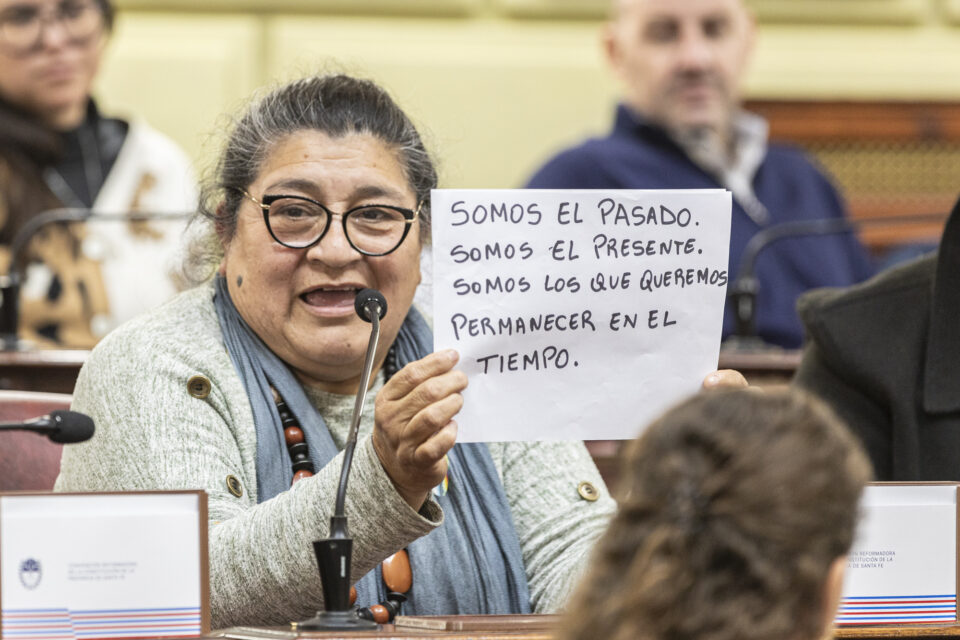 SOMOS EL PASADO.
SOMOS EL PRESENTE.
SOMOS LOS QUE QUEREMOS
PERMANECER EN EL
TIEMPO.
CONVENCIÓN REFORMADORA
DE LA CONSTITUCIÓN DE LA
PROVINCIA DE SANTA FE
REFORMADORA
DE LA
DE SANTA FE